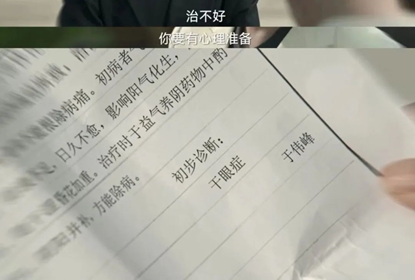 治不好
你要有心理准备
除病痛。初病者
日久不愈，影响阳气化生，
昏花加重。治疗时于益气养阴药物中酌
并补，方能除病。
初步诊断：
干眼症
于伟峰